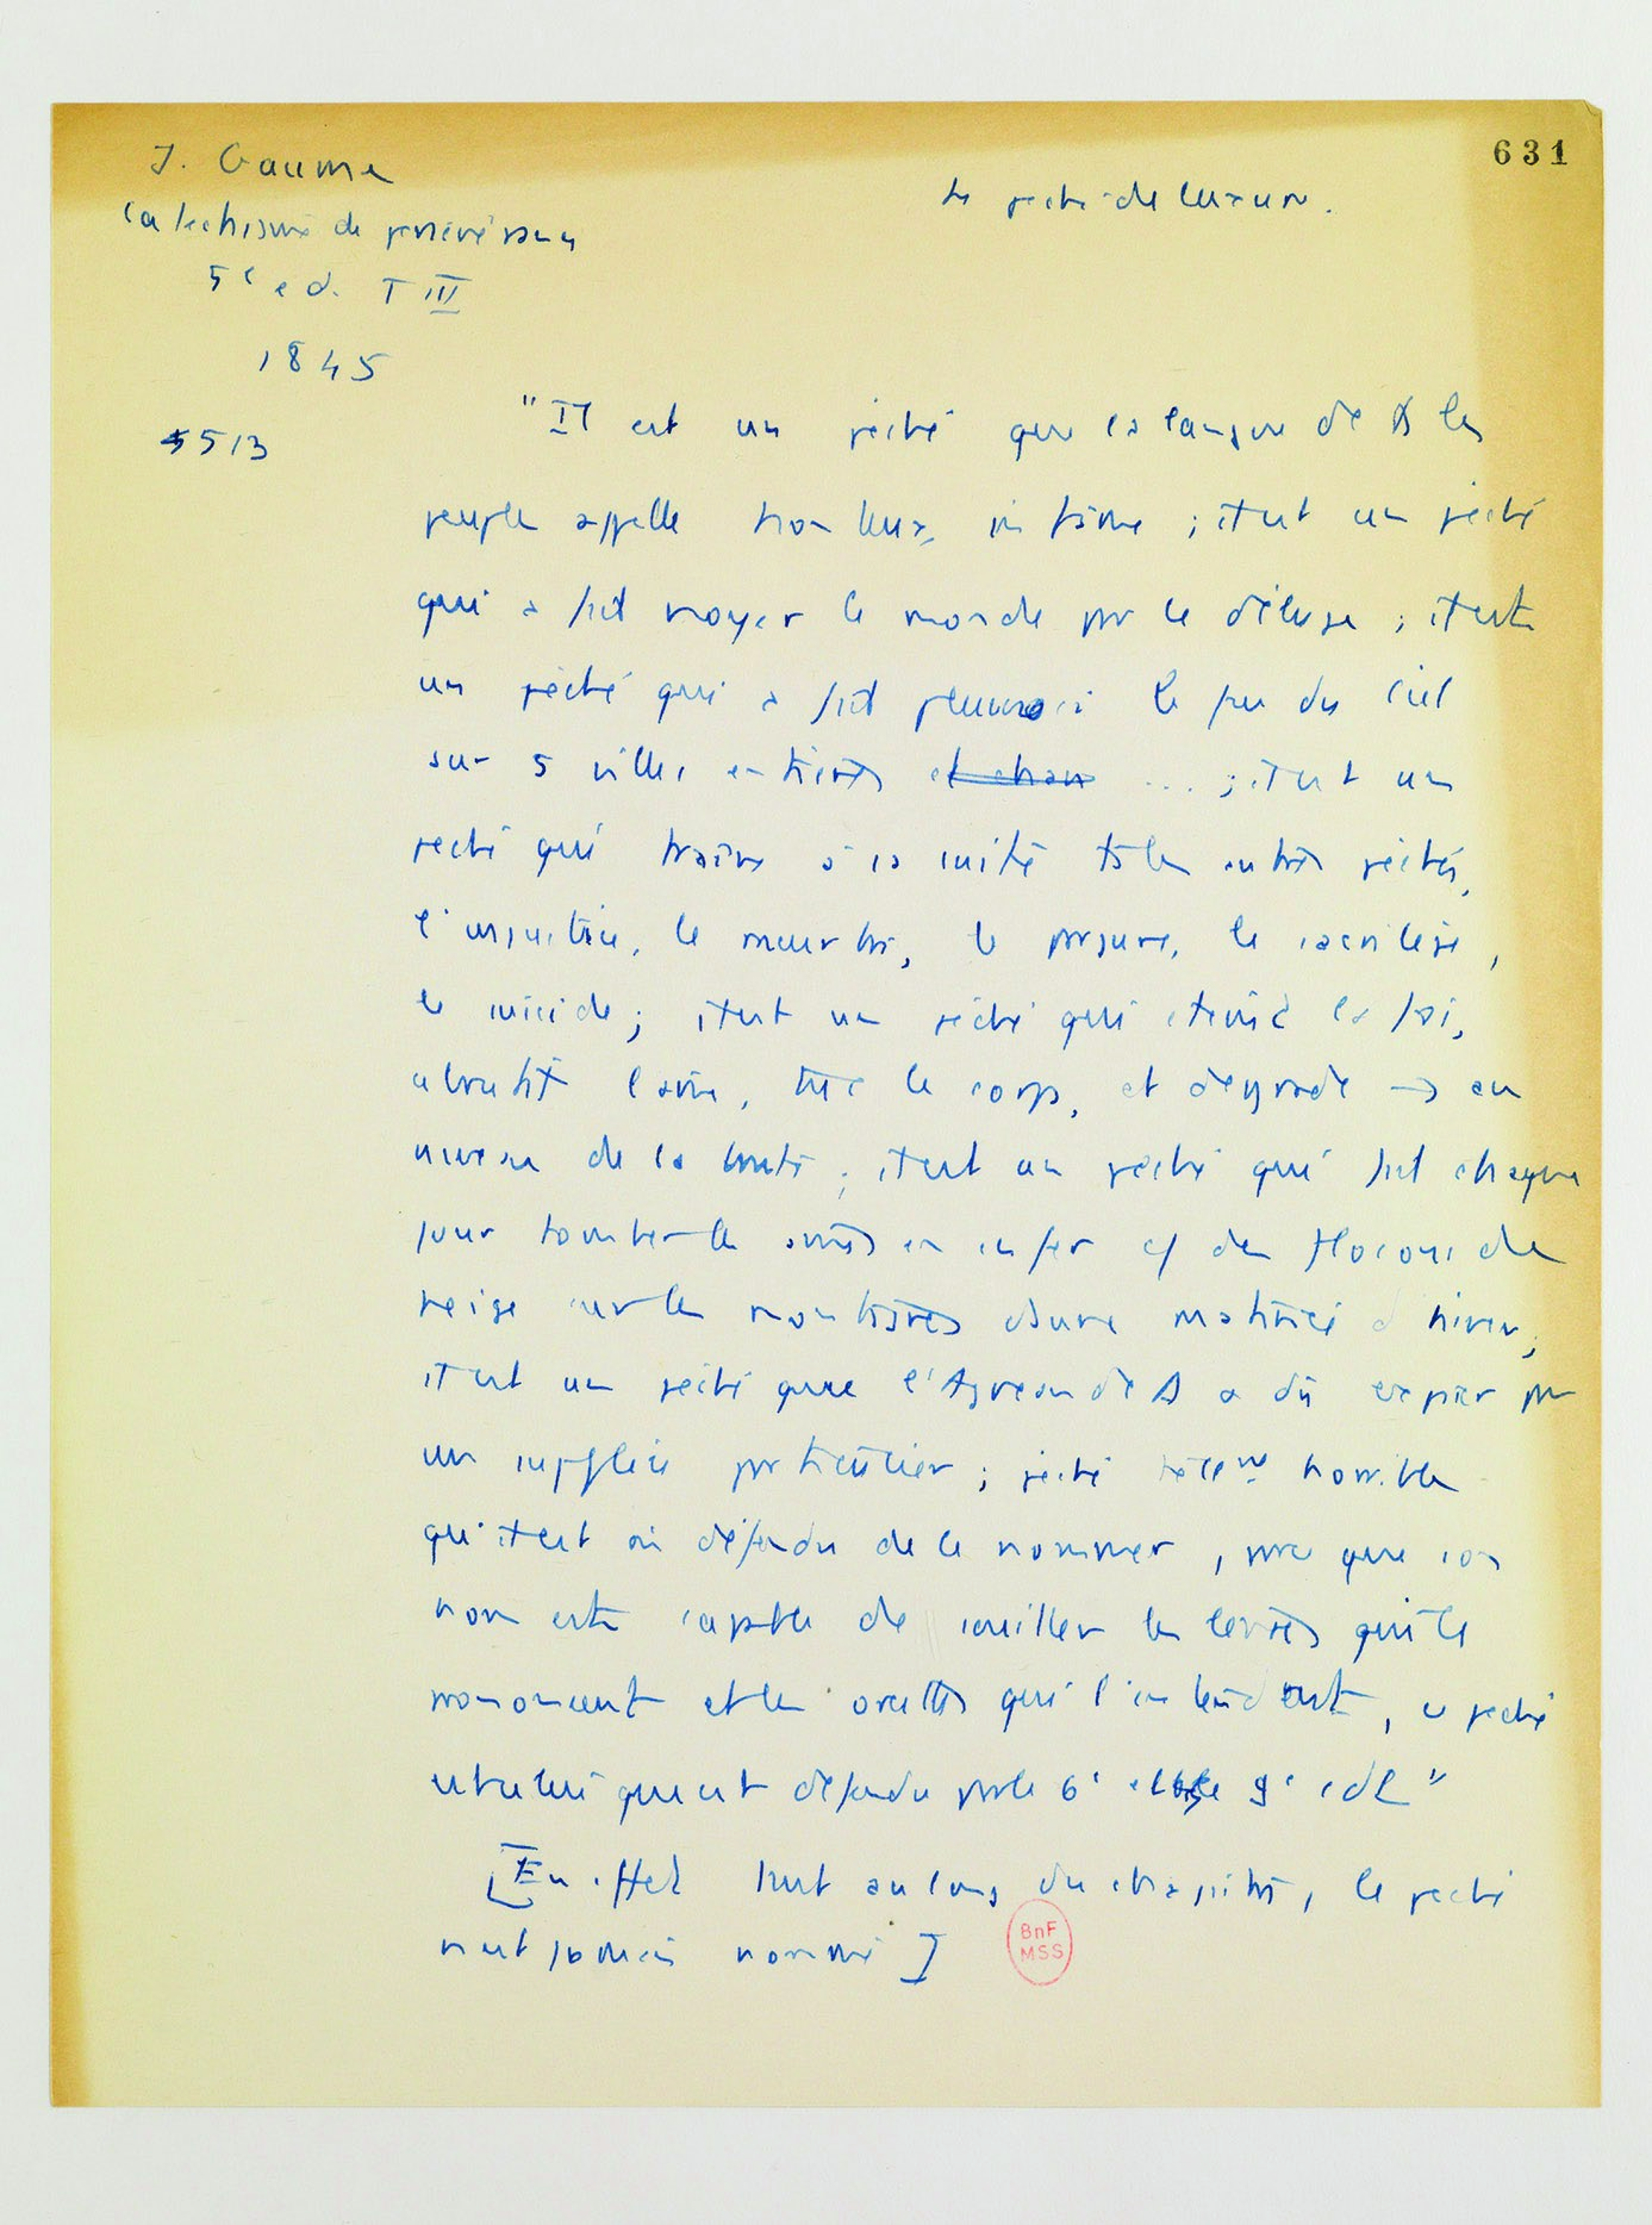 631
J. Gaume
Catechisme de persévérance
5e ed. T III
1845
513
Le péché de luxure.
"Il est un péché que la langue de ts les
peuples appelle honteux, infâme ; il est un péché
qui a fait noyer le monde par le déluge ; il est
un péché qui a fait pleuvoir le feu du ciel
sur 5 villes entières ... ; il est un
péché qui traîne à sa suite ts les autres péchés,
l'injustice, le meurtre, le parjure, le sacrilège,
le suicide ; il est un péché qui éteint la foi,
abrutit l'âme, tue le corps, et dégrade → au
niveau de la brute ; il est un péché qui fait chaque
jour tomber les âmes en enfer cf des flocons de
neige sur les montagnes dans une matinée d'hiver ;
il est un péché que l'Agneau de D a dû expier par
un supplice particulier ; péché tellent horrible
qu'il est défendu de le nommer, parce que son
nom est capable de souiller les lèvres qui le
prononcent et les oreilles qui l'entendent, ce péché
est celui qui est défendu par le 6e et le 9e cdt"
[En effet tout au long du chapitre, le péché
n'est jamais nommé]
BnF
MSS